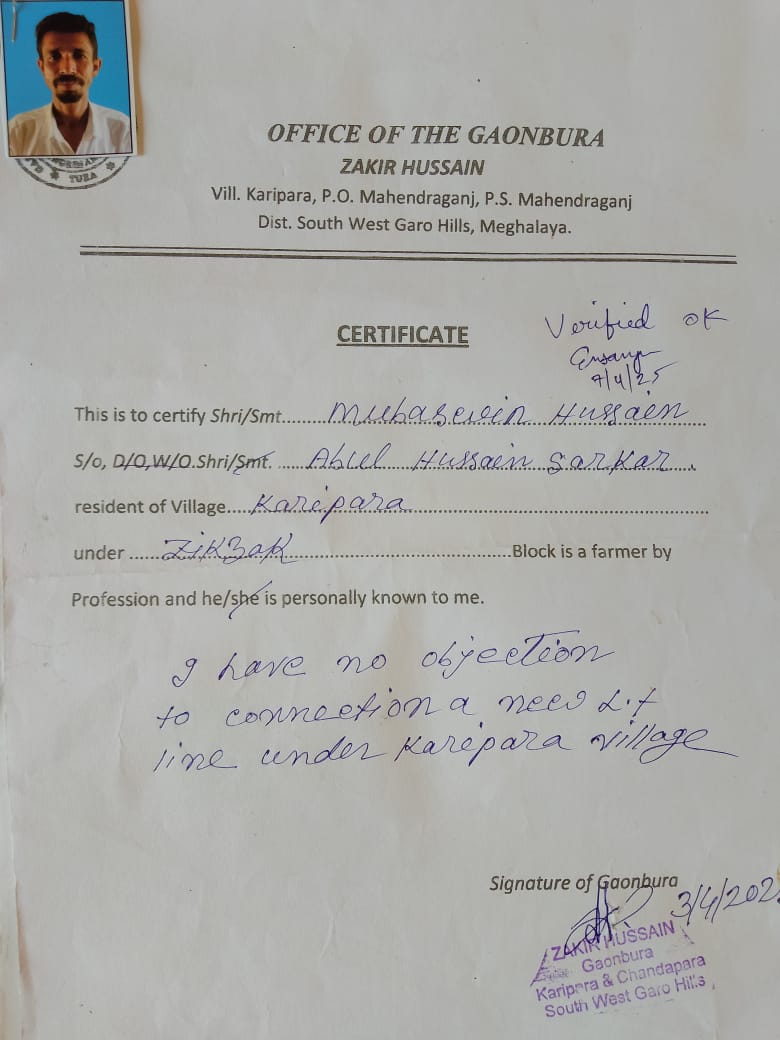 TURA
OFFICE OF THE GAONBURA
ZAKIR HUSSAIN
Vill. Karipara, P.O. Mahendraganj, P.S. Mahendraganj
Dist. South West Garo Hills, Meghalaya.
Verified OK
7/4/25
CERTIFICATE
This is to certify Shri/Smt....... Hussain
S/o, D/O,W/O.Shri/Smt. ..... Abul Hussain Sarkar.
resident of Village.... Karipara
under ...... Zikzak ......Block is a farmer by
Profession and he/she is personally known to me.
I have no objection
to connection a new L.T
line under Karipara village
Signature of Gaonbura
3/4/202
ZAKIR HUSSAIN
Gaonbura
Karipara & Chandapara
South West Garo Hills